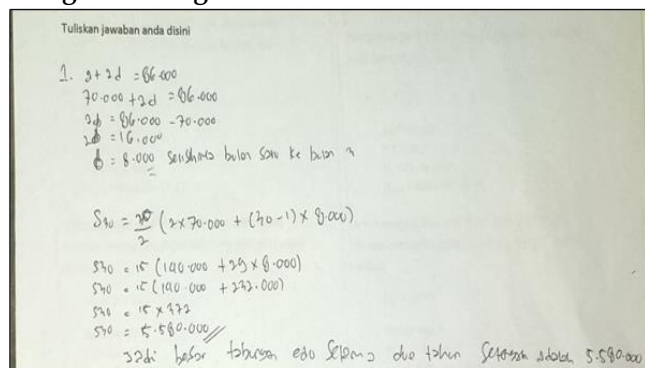 Tuliskan jawaban anda disini
1. a + 2d = 86.000
70.000 + 2d = 86.000
2d = 86.000 - 70.000
2d = 16.000
d = 8.000 selisihnya bulan satu ke bulan
S30 = 30/2 (2 x 70.000 + (30 - 1) x 8.000)
S30 = 15 (140.000 + 29 x 8.000)
S30 = 15 (140.000 + 232.000)
S30 = 15 x 372
S30 = 5.580.000
Jadi besar tabungan edo selama dua tahun setengah adalah 5.580.000